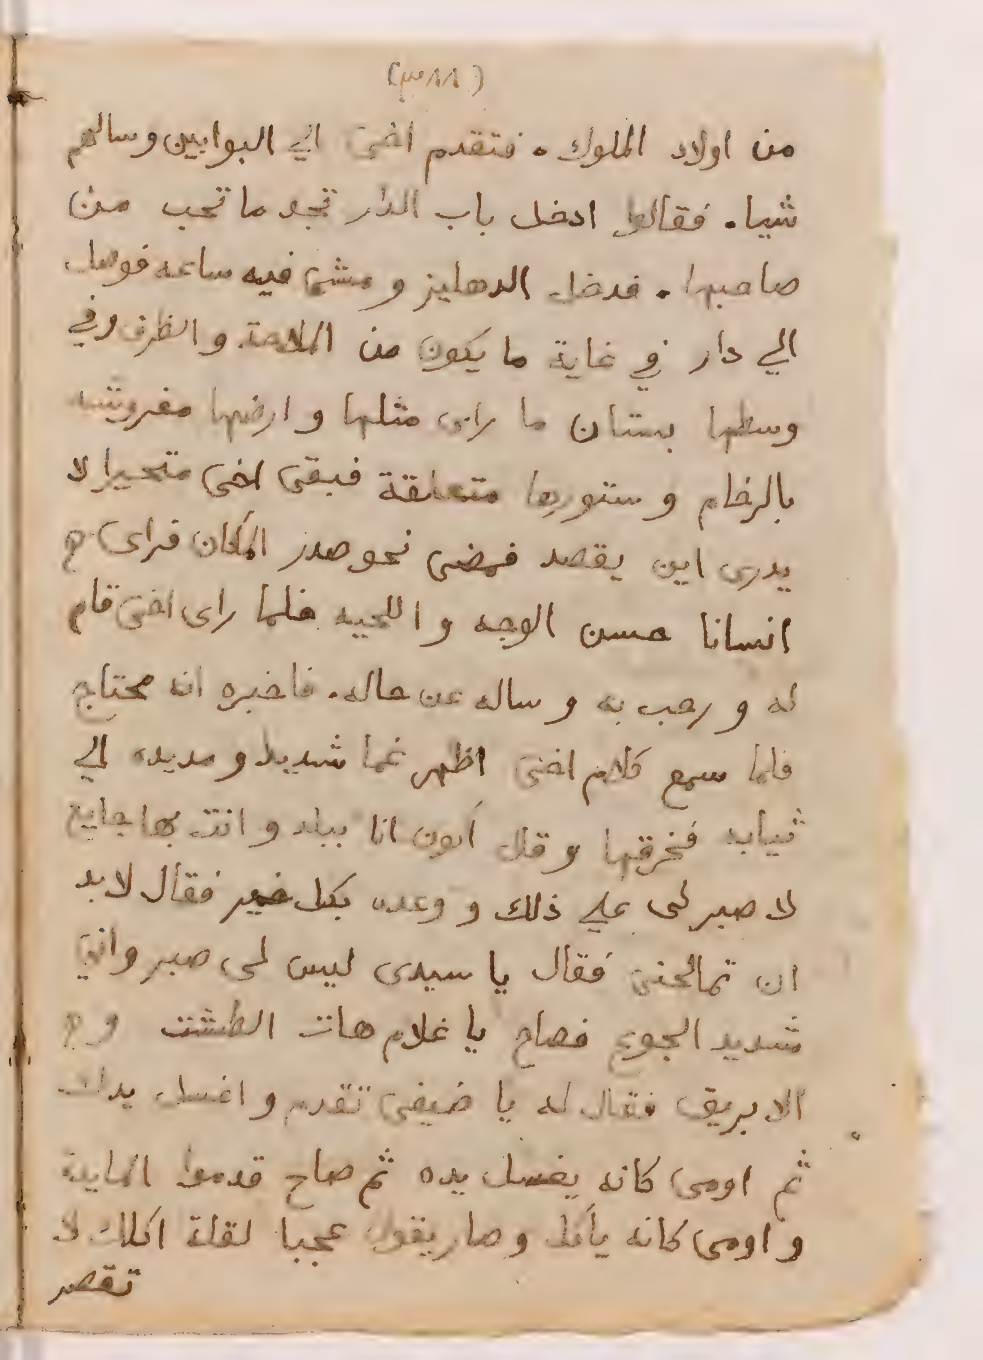 (٣٨٨)
من اولاد الملوك . فتقدم اخى الي البوابين وسالهم
شيا . فقالوا ادخل باب الدار تجد ما تحب من
صاحبها . فدخل الدهليز ومشى فيه ساعه فوصل
الي دار في غاية ما يكون من الملاحة والظرف وفي
وسطها بستان ما راى مثلها وارضها مفروشه
بالرخام وستورها متعلقة فبقى اخى متحيرا لا
يدرى اين يقصد فمضى نحو صدر المكان فراى
انسانا حسن الوجه واللحيه فلما راى اخى قام
له ورحب به وساله عن حاله . فاخبره انه محتاج
فلما سمع كلام اخى اظهر غما شديدا ومد يده الي
ثيابه فخرقها وقال اكون انا ببلد وانت بها جايع
لا صبر لى علي ذلك ووعده بكل خير فقال لابد
ان تمالحنى فقال يا سيدى ليس لى صبر وانى
شديد الجوع فصاح يا غلام هات الطشت و
الابريق فقال له يا ضيفى تقدم واغسل يدك
ثم اومى كانه يغسل يده ثم صاح قدموا المايدة
واومى كانه ياكل وصار يقول عجبا لقلة اكلك لا
تقصر